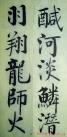 鹹河淡鱗潛
羽翔龍師火